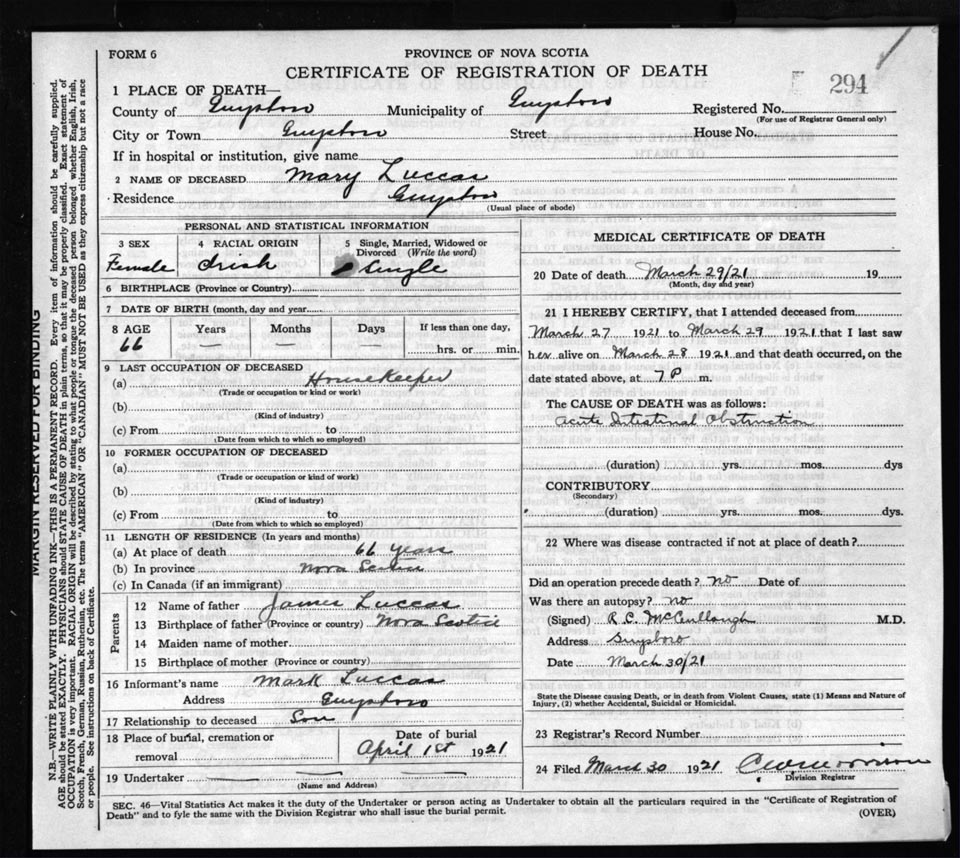 FORM 6
PROVINCE OF NOVA SCOTIA
CERTIFICATE OF REGISTRATION OF DEATH
294
1 PLACE OF DEATH—
County of Guysboro Municipality of Guysboro Registered No.
(For use of Registrar General only)
City or Town Guysboro Street House No.
If in hospital or institution, give name
2 NAME OF DECEASED Mary Luccas
Residence Guysboro
(Usual place of abode)
PERSONAL AND STATISTICAL INFORMATION
3 SEX 4 RACIAL ORIGIN 5 Single, Married, Widowed or Divorced (Write the word)
Female Irish Single
6 BIRTHPLACE (Province or Country)
7 DATE OF BIRTH (month, day and year
8 AGE Years Months Days If less than one day,
66 — — — hrs. or min.
9 LAST OCCUPATION OF DECEASED
(a) HouseKeeper
(Trade or occupation or kind or work)
(b)
(Kind of industry)
(c) From to
(Date from which to which so employed)
10 FORMER OCCUPATION OF DECEASED
(a)
(Trade or occupation or kind of work)
(b)
(Kind of industry)
(c) From to
(Date from which to which so employed)
11 LENGTH OF RESIDENCE (In years and months)
(a) At place of death 66 years
(b) In province Nova Scotia
(c) In Canada (if an immigrant)
Parents
12 Name of father James Luccas
13 Birthplace of father (Province or country) Nova Scotia
14 Maiden name of mother
15 Birthplace of mother (Province or country)
16 Informant's name Mark Luccas
Address Guysboro
17 Relationship to deceased Son
18 Place of burial, cremation or removal Date of burial
April 1st 1921
19 Undertaker — — —
(Name and Address)
MEDICAL CERTIFICATE OF DEATH
20 Date of death March 29/21 19
(Month, day and year)
21 I HEREBY CERTIFY, that I attended deceased from
March 27 1921 to March 29 1921 that I last saw
her alive on March 28 1921 and that death occurred, on the
date stated above, at 7 P m.
The CAUSE OF DEATH was as follows:
Acute Intestinal Obstruction
(duration) yrs. mos. dys
CONTRIBUTORY
(Secondary)
(duration) yrs. mos. dys.
22 Where was disease contracted if not at place of death?
Did an operation precede death? no Date of
Was there an autopsy? no
(Signed) R.C. McCullough M.D.
Address Guysboro
Date March 30/21
State the Disease causing Death, or in death from Violent Causes, state (1) Means and Nature of
Injury, (2) whether Accidental, Suicidal or Homicidal.
23 Registrar's Record Number
24 Filed March 30 1921
Division Registrar
SEC. 46—Vital Statistics Act makes it the duty of the Undertaker or person acting as Undertaker to obtain all the particulars required in the "Certificate of Registration of
Death" and to fyle the same with the Division Registrar who shall issue the burial permit.
(OVER)
MARGIN RESERVED FOR BINDING
N.B.—WRITE PLAINLY WITH UNFADING INK—THIS IS A PERMANENT RECORD. Every item of information should be carefully supplied.
AGE should be stated EXACTLY. PHYSICIANS should STATE CAUSE OF DEATH in plain terms, so that it may be properly classified. Exact statement of
OCCUPATION is very important. RACIAL ORIGIN will be described by stating to what people or tongue the deceased person belonged whether English, Irish,
Scotch, French, German, Russian, Ruthenian, etc. The terms "AMERICAN" OR "CANADIAN" MUST NOT BE USED as they express citizenship but not a race
or people. See instructions on back of Certificate.